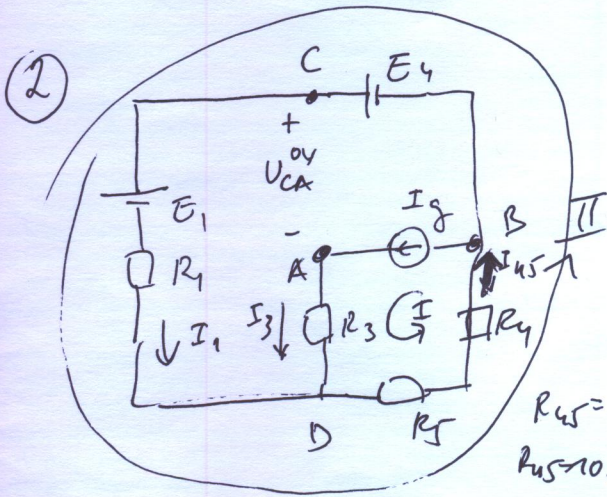 2
C
E4
+
U_CA^04
-
E1
Ig
B
II
A
I45
R1
I1
I3
R3
I
R4
D
R5
R45=
R45=10